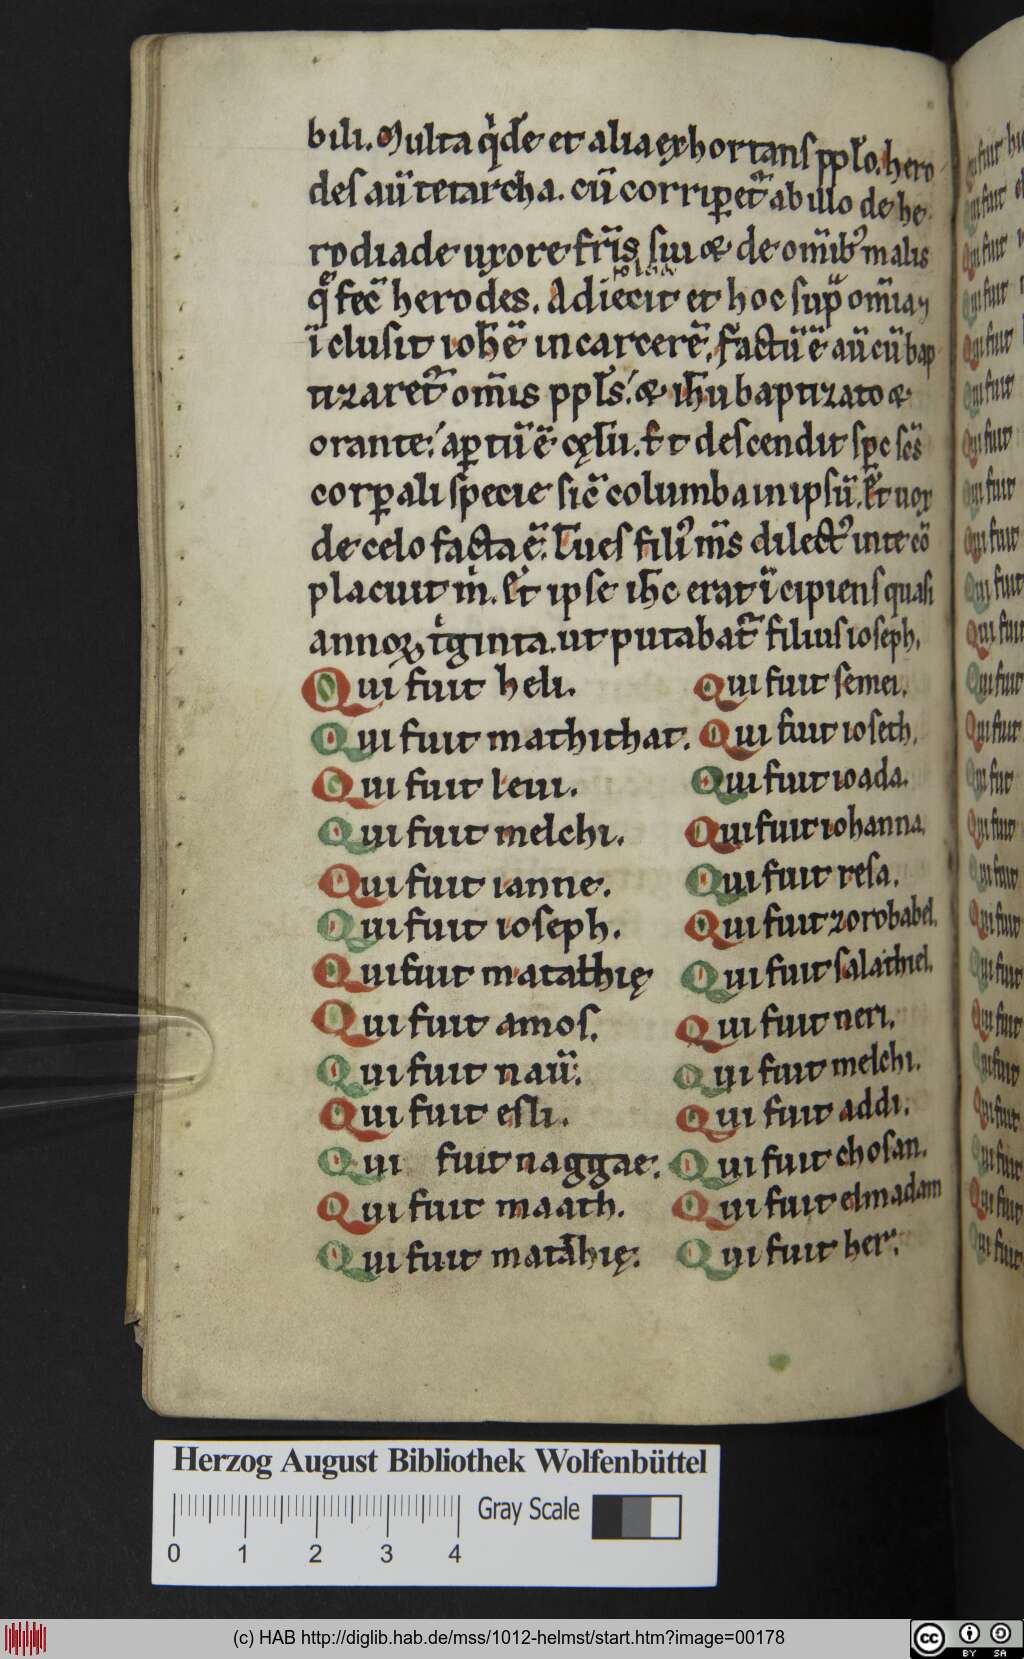 bili. Multa q̇dē et alia exhortans ppłō. hero
des aū tetarcha. cū corriperet᷑ ab illo de he
rodiade uxore fr̄is sui & de om̄ib᷒ malis
q̄ fec̄ herodes. Adiecit et hoc sup om̄ia
ı̄clusit ioħē in carcerē. Factū ē aū cū bap
tizaret᷑ om̄is ppłs. & ıħu baptizato &
orante. apertū ē cęłū. Et descendit sp̄c sc̄s
corporali specie sic̄ columba in ipsū. Et uox
de celo facta ē. Tu es fili᷒ m̄s dilect᷒ in te cō
placuit ṁ. Et ipse ıħc erat ı̄cipiens quasi
annoꝝ t̍ginta. ut putabat᷑ filius ioseph.
Qui fuit heli.
Qui fuit mathithat.
Qui fuit leui.
Qui fuit melchi.
Qui fuit ianne.
Qui fuit ioseph.
Qui fuit matathię
Qui fuit amos.
Qui fuit naū.
Qui fuit esli.
Qui fuit naggae.
Qui fuit maath.
Qui fuit matathię.
Qui fuit semei.
Qui fuit ioseth.
Qui fuit ioada.
Qui fuit iohanna.
Qui fuit resa.
Qui fuit zorobabel.
Qui fuit salathiel.
Qui fuit neri.
Qui fuit melchi.
Qui fuit addi.
Qui fuit chosan.
Qui fuit elmadam
Qui fuit her.
Herzog August Bibliothek Wolfenbüttel
Gray Scale
0 1 2 3 4
(c) HAB http://diglib.hab.de/mss/1012-helmst/start.htm?image=00178
cc BY SA